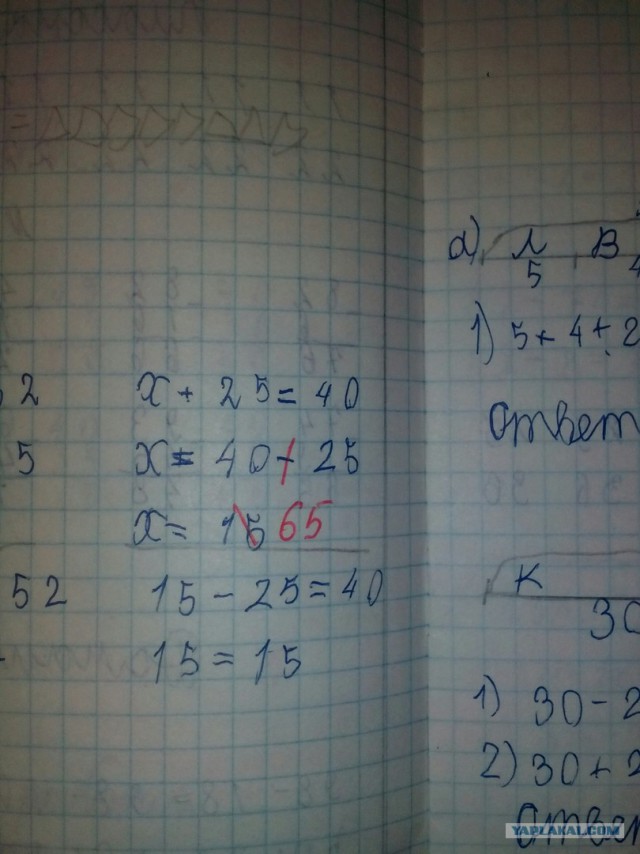 2
5
52
x + 25 = 40
x = 40 + 25
x = 15 65
15 - 25 = 40
15 = 15
д) Л В
5 4
1) 5 + 4 + 2
Ответ
К
30
1) 30 - 2
2) 30 + 2
Ответ
YAPLAKAL.COM